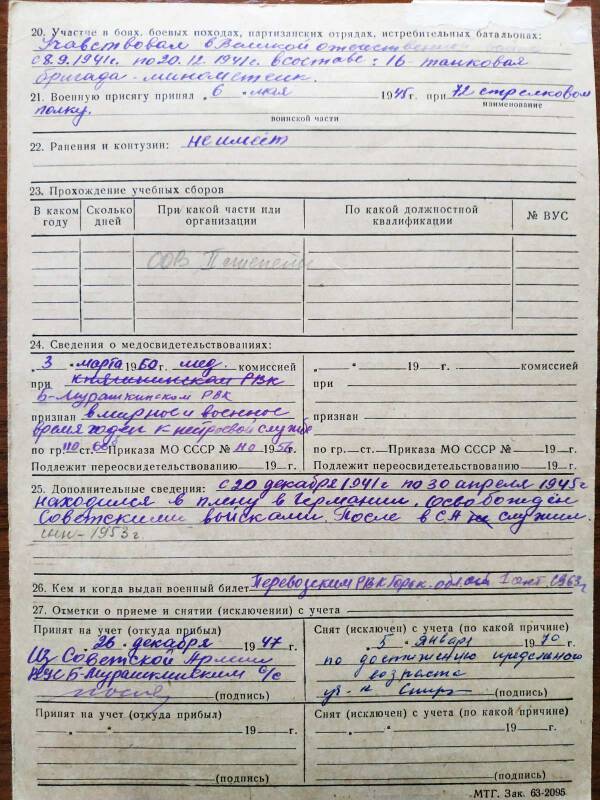 20. Участие в боях, боевых походах, партизанских отрядах, истребительных батальонах:
Учавствовал в Великой отечественной
с 8.9.1941г. по 20.12.1941г. в составе: 16 танковая
бригада - минометчик.
21. Военную присягу принял „ 6 “ мая 1945 г. при 72 стрелковом
наименование
полку.
воинской части
22. Ранения и контузии: не имеет
23. Прохождение учебных сборов
В каком году Сколько дней При какой части или организации По какой должностной квалификации № ВУС
ООВ II степени
24. Сведения о медосвидетельствованиях:
„ 3 “ марта 1960 г. мед. комиссией
при Княгининском РВК
Б-Мурашкинском РВК
признан в мирное и военное
время годен к нестроевой службе
по гр. по ст. 66в Приказа МО СССР № 110 1956 г.
Подлежит переосвидетельствованию 19 г.
„ “ 19 г. комиссией
при
признан
по гр. — ст. — Приказа МО СССР № 19 г.
Подлежит переосвидетельствованию 19 г.
25. Дополнительные сведения: с 20 декабря 1941г по 30 апреля 1945г
находился в плену в Германии. Освобождён
Советскими войсками. После в СА не служил.
1953г.
26. Кем и когда выдан военный билет Перевозским РВК Горьк. обл. 1 окт. 1963г
27. Отметки о приеме и снятии (исключении) с учета
Принят на учет (откуда прибыл)
„ 26 “ декабря 1947 г.
Из Советской Армии
Б-Мурашкинским с/с
(подпись)
Снят (исключен) с учета (по какой причине)
„ 5 “ Января 1970 г.
по достижению предельного
возраста
(подпись)
Принят на учет (откуда прибыл)
„ “ 19 г.
(подпись)
Снят (исключен) с учета (по какой причине)
„ “ 19 г.
(подпись)
МТГ. Зак. 63-2095